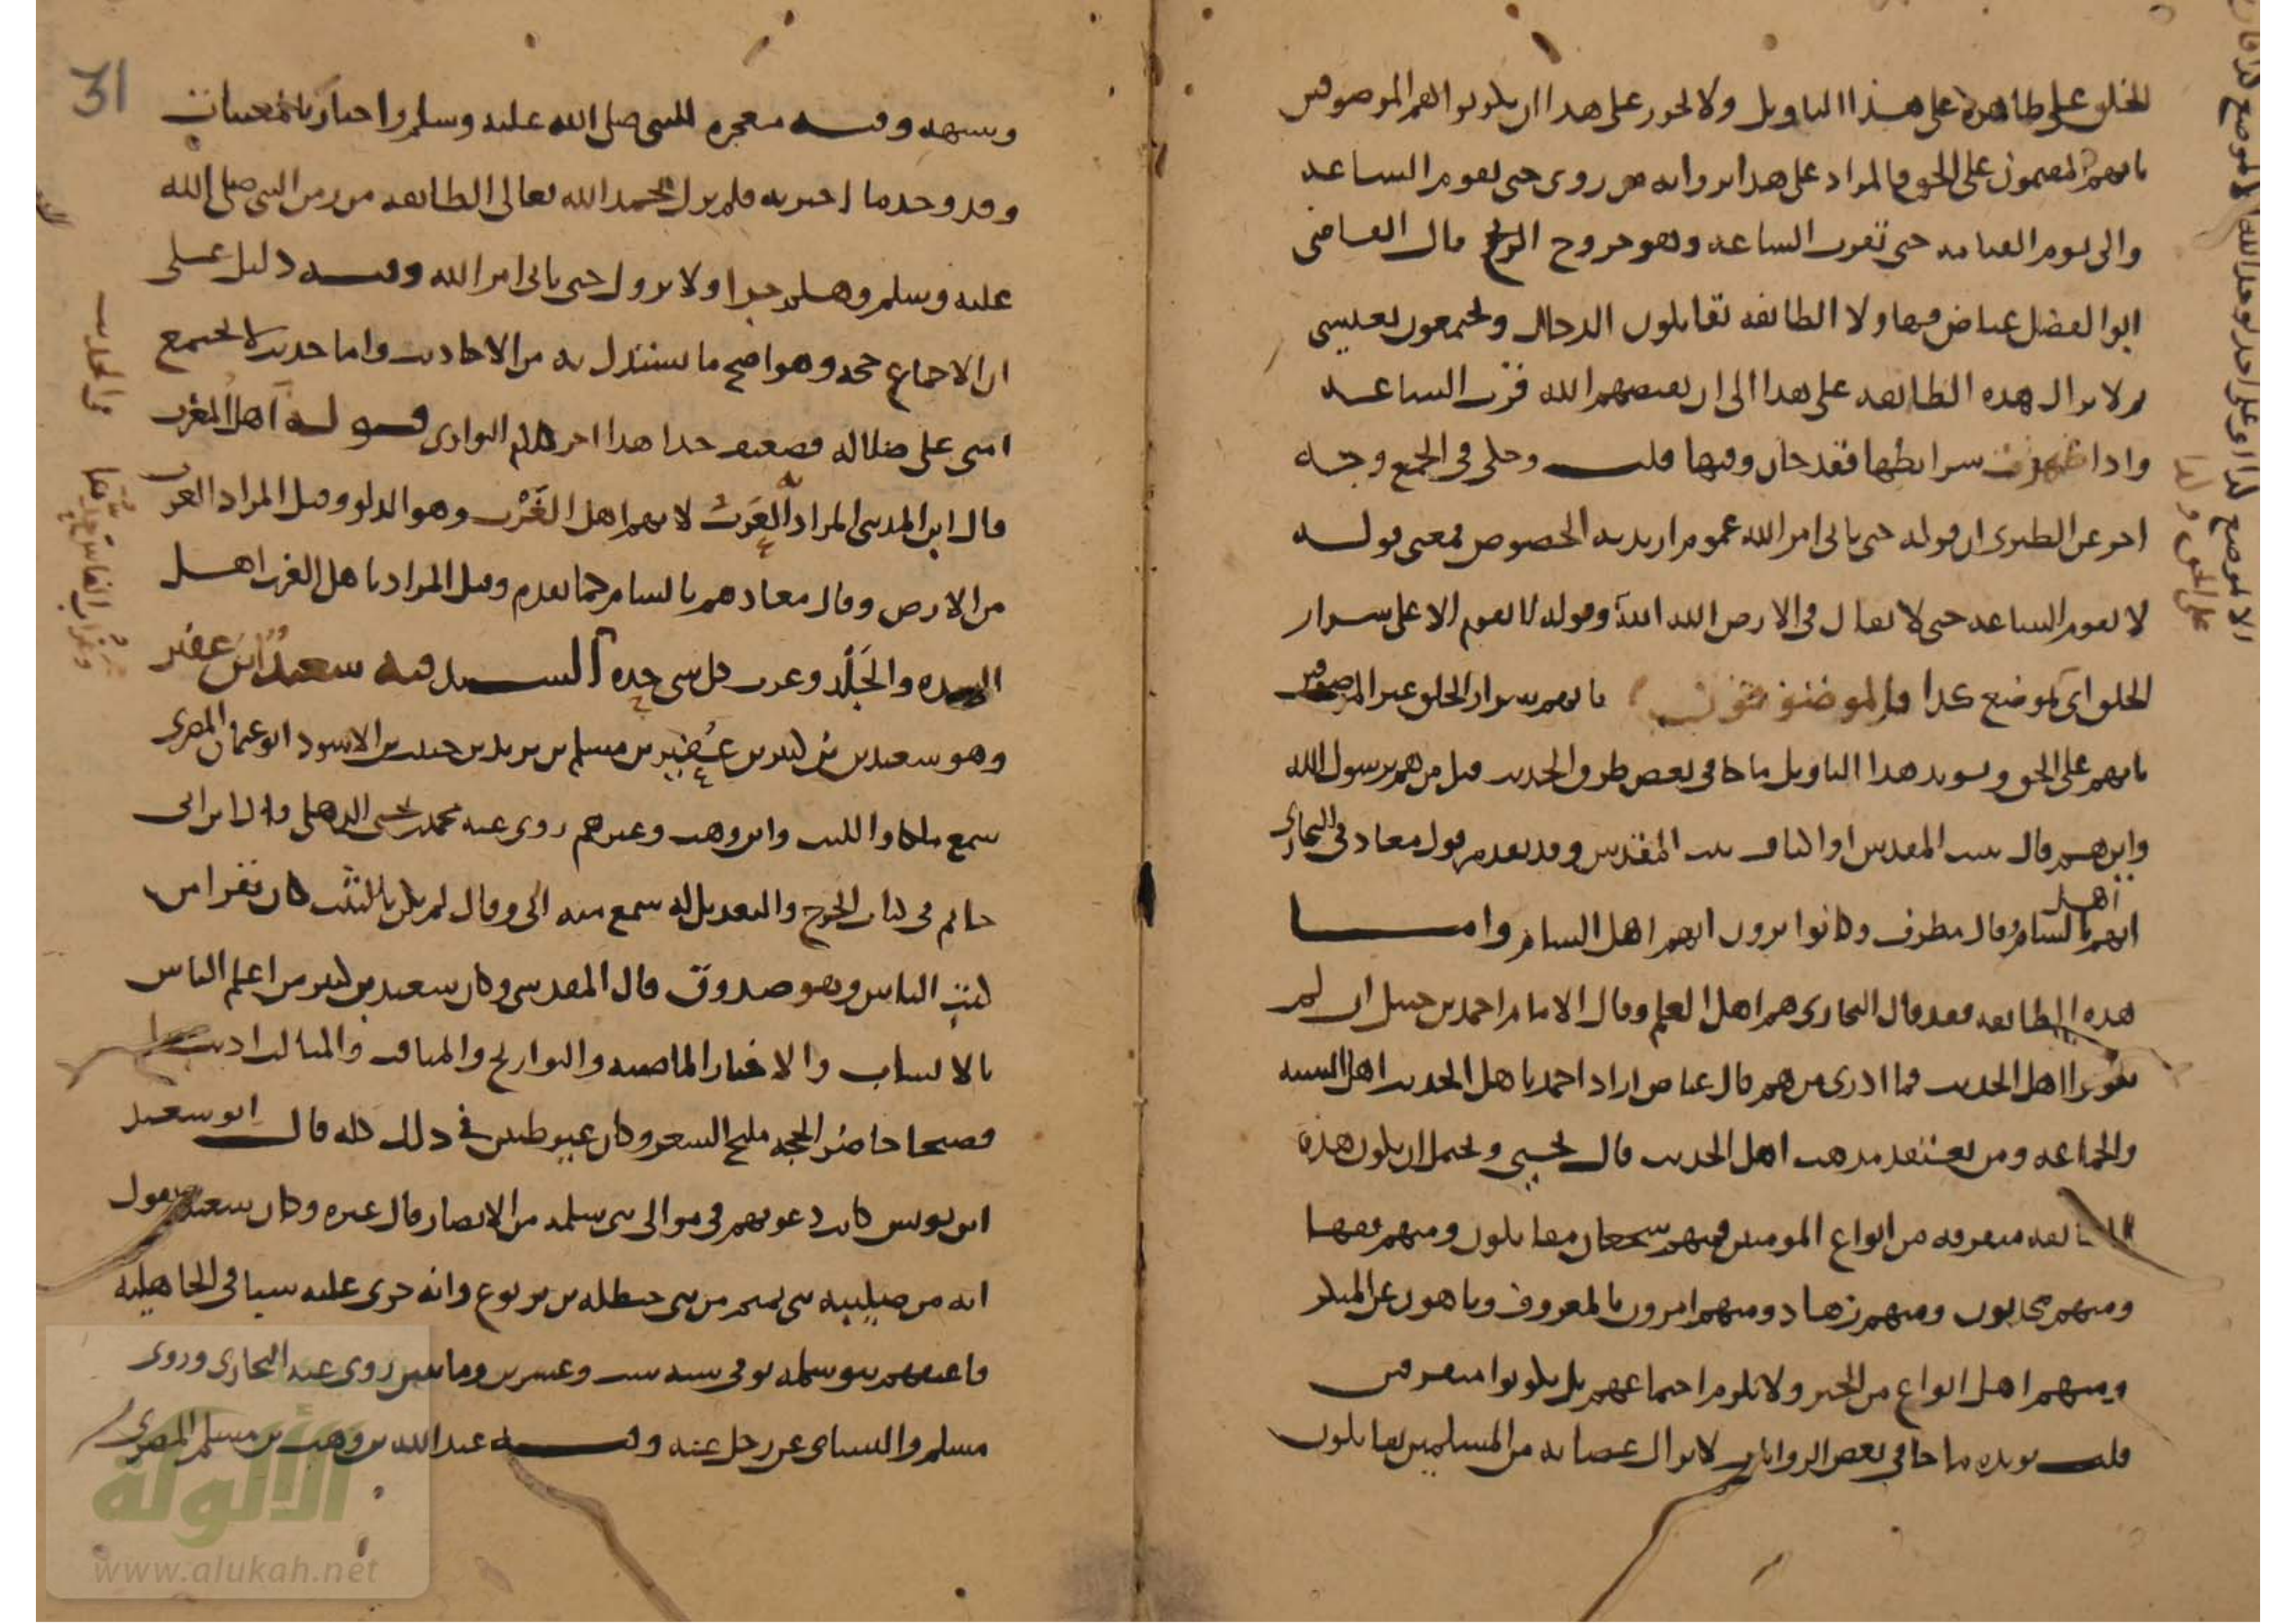 الخلق على ظاهره على هذا التاويل ولا يجوز على هذا ان يكونوا الهم الموصوفين
بانهم المقيمون على الحق فالمراد على هذا بروايه من روى حتى تقوم الساعه
والى يوم القيامه حتى تقرب الساعه وهو خروج الريح قال القاضي
ابو الفضل عياض فيها ولا الطائفه تقاتلون الدجال ويجتمعون بعيسى
ولا يزال هذه الطائفه على هذا الى ان يقبضهم الله قرب الساعه
واذا ظهرت شرائطها فقد حان وقتها قلت وحكي في الجمع وجه
اخر عن الطبري ان قوله حتى ياتي امر الله عموم اريد به الخصوص فمعنى قوله
لا تقوم الساعه حتى لا يقال في الارض الله الله وقوله لا تقوم الا على شرار
الخلق اي بموضع كذا فالموضع بانهم شرار الخلق غير الموصوفين
بانهم على الحق ويويد هذا التاويل ما جا في بعض طرق الحديث قيل من هم يرسول الله
واين هم قال ببيت المقدس او اكناف بيت المقدس وقد تقدم قول معاذ في البخاري
اهل
انهم بالشام وقال مطرف وكانوا يرون انهم اهل الشام واما
هذه الطائفه فقد قال البخاري هم اهل العلم وقال الامام احمد بن حنبل ان لم
يكونوا اهل الحديث فما ادري من هم قال عياض اراد احمد باهل الحديث اهل السنه
والجماعه ومن يعتقد مذهب اهل الحديث قال يحيى ويحتمل ان يكون هذه
الطائفه متفرقه من انواع المومنين فمنهم شجعان مقاتلون ومنهم فقها
ومنهم محدثون ومنهم زهاد ومنهم امرون بالمعروف وناهون عن المنكر
ومنهم اهل انواع من الخير ولا يلزم اجتماعهم بل يكونوا متفرقين
قلت يويده ما جا في بعض الروايات لا يزال عصابه من المسلمين يقاتلون
31
وشبهه وفيه معجزه للنبي صلى الله عليه وسلم واخبار بالمغيبات
وقد وجد ما اخبر به فلم يزل بحمد الله تعالى الطائفه من زمن النبي صلى الله
عليه وسلم وهلم جرا ولا يزول حتى ياتي امر الله وفيه دليل على
ان الاجماع حجه وهو اصح ما يستدل به من الاحاديث واما حديث لا تجتمع
امتي على ضلاله فضعيف جدا هذا اخر كلام النواوي قوله اهل المغرب
قال ابن المديني المراد العرب لانهم اهل الغرب وهو الدلو وقيل المراد الغرب
من الارض وقال معاذ هم بالشام كما تقدم وقيل المراد باهل الغرب اهل
الشده والجلد وغرب كل شي حده السند فيه سعيد ابن عفير
وهو سعيد بن كثير بن عفير بن مسلم بن يزيد بن حبيب بن الاسود ابو عثمان المصري
سمع ملكا والليث وابن وهب وغيرهم روى عنه محمد بن يحيى الذهلي قال ابن ابي
حاتم في كتاب الجرح والتعديل له سمع منه ابي وقال لم يكن بالثبت كان يقرا من
كتب الناس وهو صدوق قال المقدسي وكان سعيد بن كثير من اعلم الناس
بالانساب والاخبار الماضيه والتواريخ والمناقب والمثالب اديبا
فصيحا حاضر الحجه مليح الشعر وكان غير ظنين في ذلك كله قال ابو سعيد
ابن يونس كانت دعوتهم في موالي بني سلمه من الانصار قال غيره وكان سعيد يقول
انه من صليبيه بني تميم من بني حنظله بن يربوع وانه جرى عليه سبا في الجاهليه
فاعتقهم بنو سلمه توفي سنه ست وعشرين ومايتين روى عنه البخاري وروى
مسلم والنسائي عن رجل عنه وفيه عبد الله بن وهب بن مسلم المصري
الألوكة
www.alukah.net